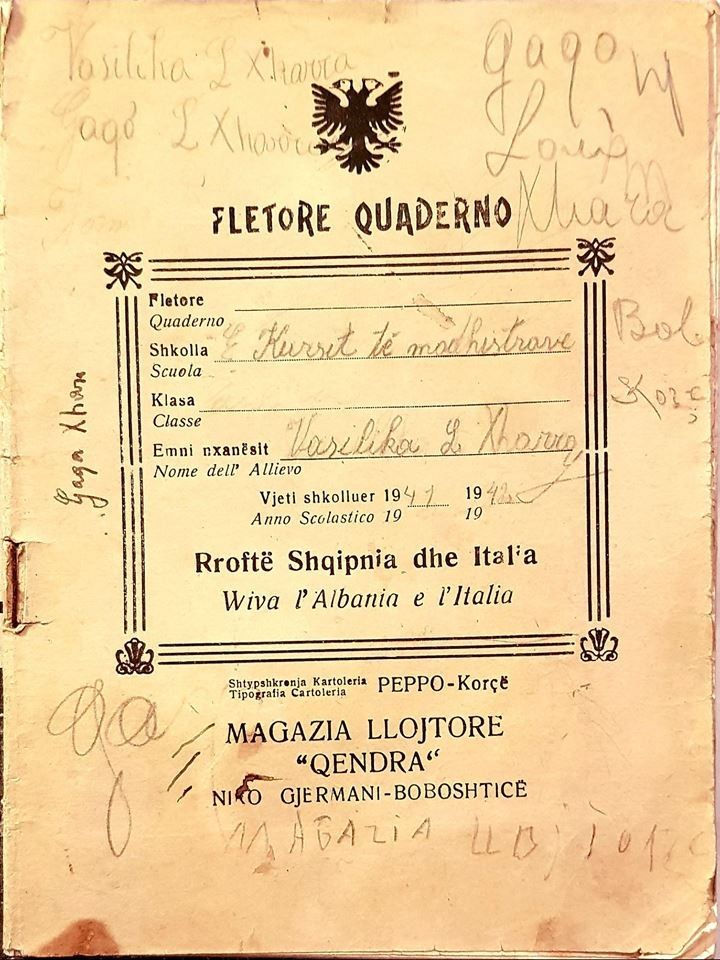 Vasilika L Xharra
Gago L Xharra
Gago
Xharra
FLETORE QUADERNO
Fletore
Quaderno
Shkolla E Kursit të modhistrave
Scuola
Klasa
Classe
Emni nxanësit Vasilika L Xharra
Nome dell' Allievo
Vjeti shkolluer 1941 1942
Anno Scolastico 19 19
Rroftë Shqipnia dhe Italia
Wiva l'Albania e l'Italia
Bob
Korç
Gaga Xhar
Shtypshkronja Kartoleria
Tipografia Cartoleria
PEPPO-Korçë
MAGAZIA LLOJTORE
“QENDRA“
NIKO GJERMANI-BOBOSHTICË
Ga
MAGAZIA